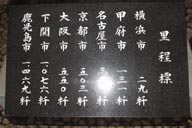 里程標
横浜市 二九粁
甲府市 一三一粁
名古屋市 三六六粁
京都市 五〇三粁
大阪市 五五〇粁
下関市 一〇七六粁
鹿児島市 一四六九粁